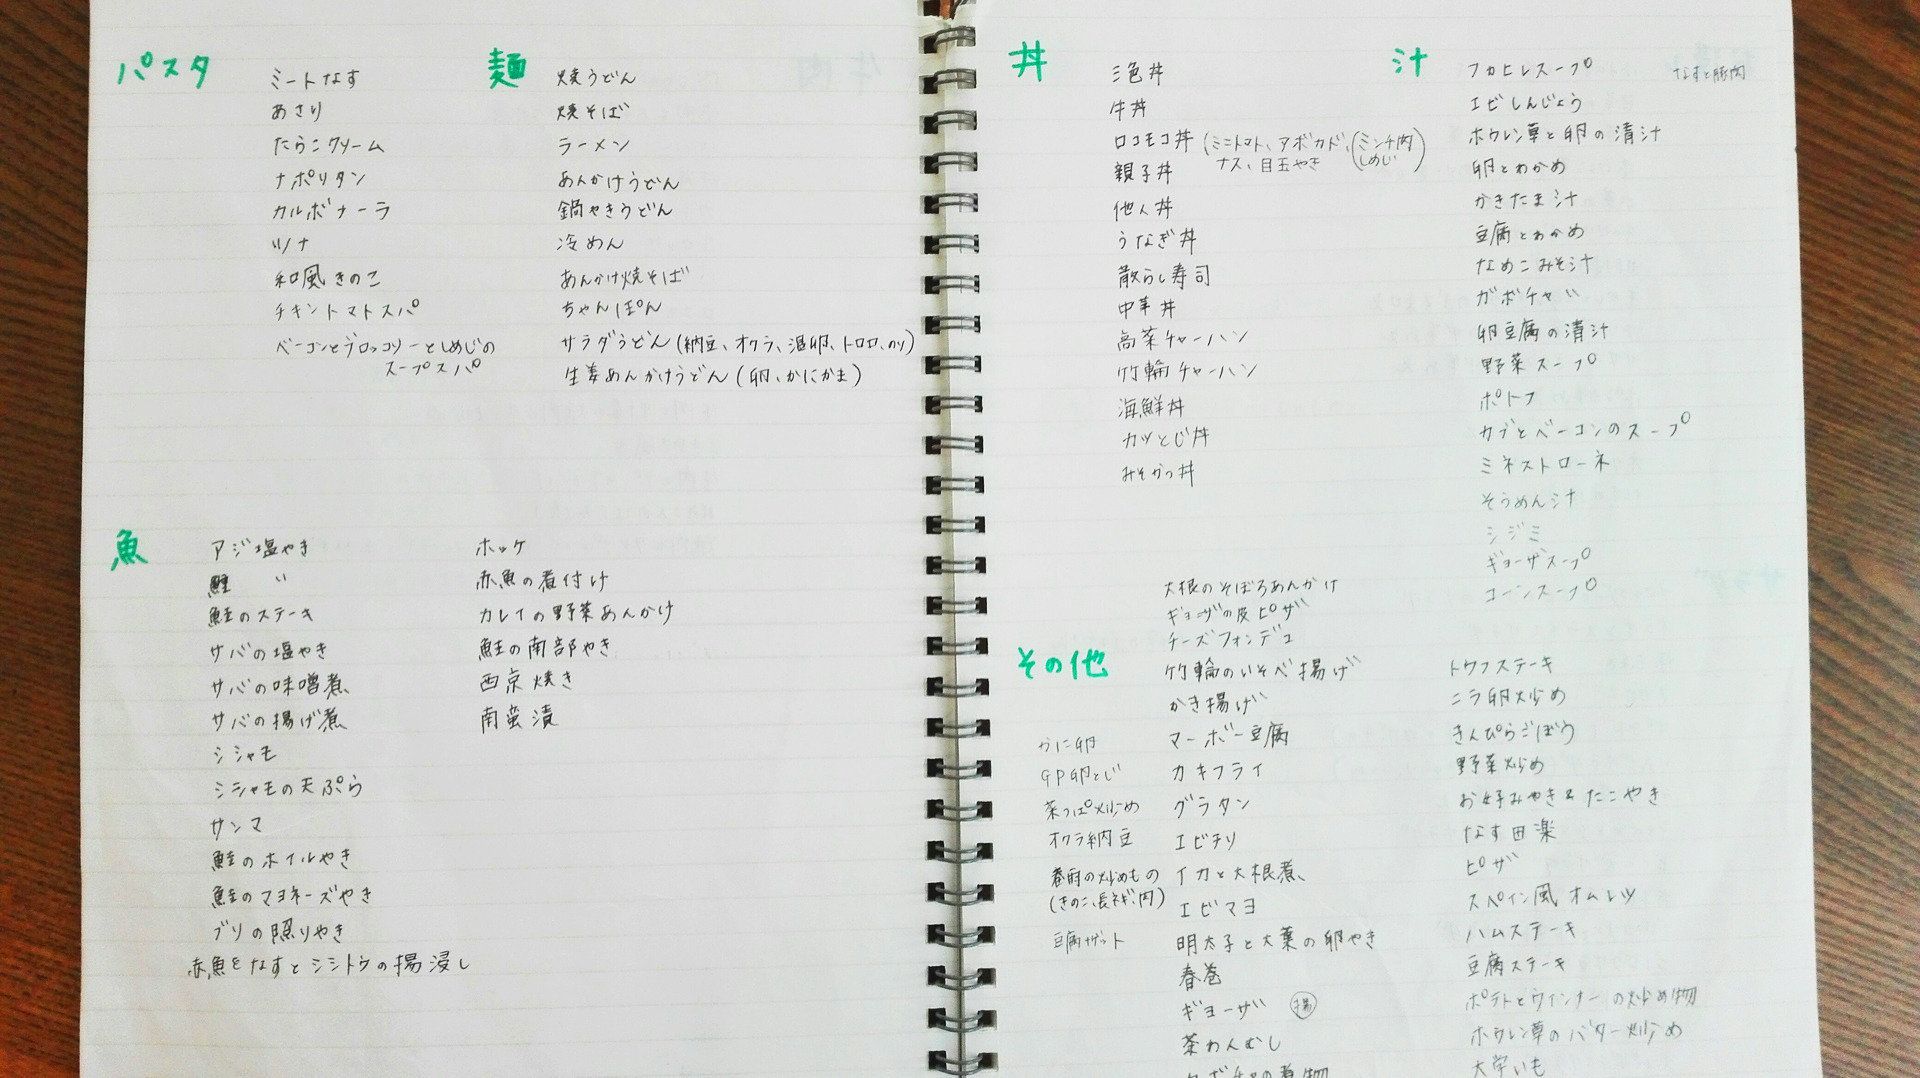 パスタ
ミートなす
あさり
たらこクリーム
ナポリタン
カルボナーラ
ツナ
和風きのこ
チキントマトスパ
ベーコンとブロッコリーとしめじの
スープスパ
麺
焼うどん
焼そば
ラーメン
あんかけうどん
鍋やきうどん
冷めん
あんかけ焼そば
ちゃんぽん
サラダうどん(納豆、オクラ、温卵、トロロ、のり)
生姜あんかけうどん(卵、かにかま)
魚
アジ塩やき
鮭 〃
鮭のステーキ
サバの塩やき
サバの味噌煮
サバの揚げ煮
シシャモ
シシャモの天ぷら
サンマ
鮭のホイルやき
鮭のマヨネーズやき
ブリの照りやき
赤魚となすとシシトウの揚浸し
ホッケ
赤魚の煮付け
カレイの野菜あんかけ
鮭の南部やき
西京焼き
南蛮漬
丼
三色丼
牛丼
ロコモコ丼(ミニトマト、アボカド、(ミンチ肉
ナス、目玉やき しめじ)
親子丼
他人丼
うなぎ丼
散らし寿司
中華丼
高菜チャーハン
竹輪チャーハン
海鮮丼
カツとじ丼
みそかつ丼
汁
フカヒレスープ
なすと豚肉
エビしんじょう
ホウレン草と卵の清汁
卵とわかめ
かきたま汁
豆腐とわかめ
なめこみそ汁
カボチャ 〃
卵豆腐の清汁
野菜スープ
ポトフ
カブとベーコンのスープ
ミネストローネ
そうめん汁
シジミ
ギョーザスープ
コーンスープ
その他
大根のそぼろあんかけ
ギョーザの皮ピザ
チーズフォンデュ
竹輪のいそべ揚げ
かき揚げ
マーボー豆腐
カキフライ
グラタン
エビチリ
イカと大根煮
エビマヨ
明太子と大葉の卵やき
春巻
ギョーザ 揚
茶わんむし
カボチャの煮物
かに卵
GP卵とじ
菜っぱ炒め
オクラ納豆
春雨の炒めもの
(きのこ、長ネギ、肉)
トウフステーキ
ニラ卵炒め
きんぴらごぼう
野菜炒め
お好みやき&たこやき
なす田楽
ピザ
スペイン風オムレツ
ハムステーキ
豆腐ステーキ
ポテトとウインナーの炒め物
ホウレン草のバター炒め
大学いも